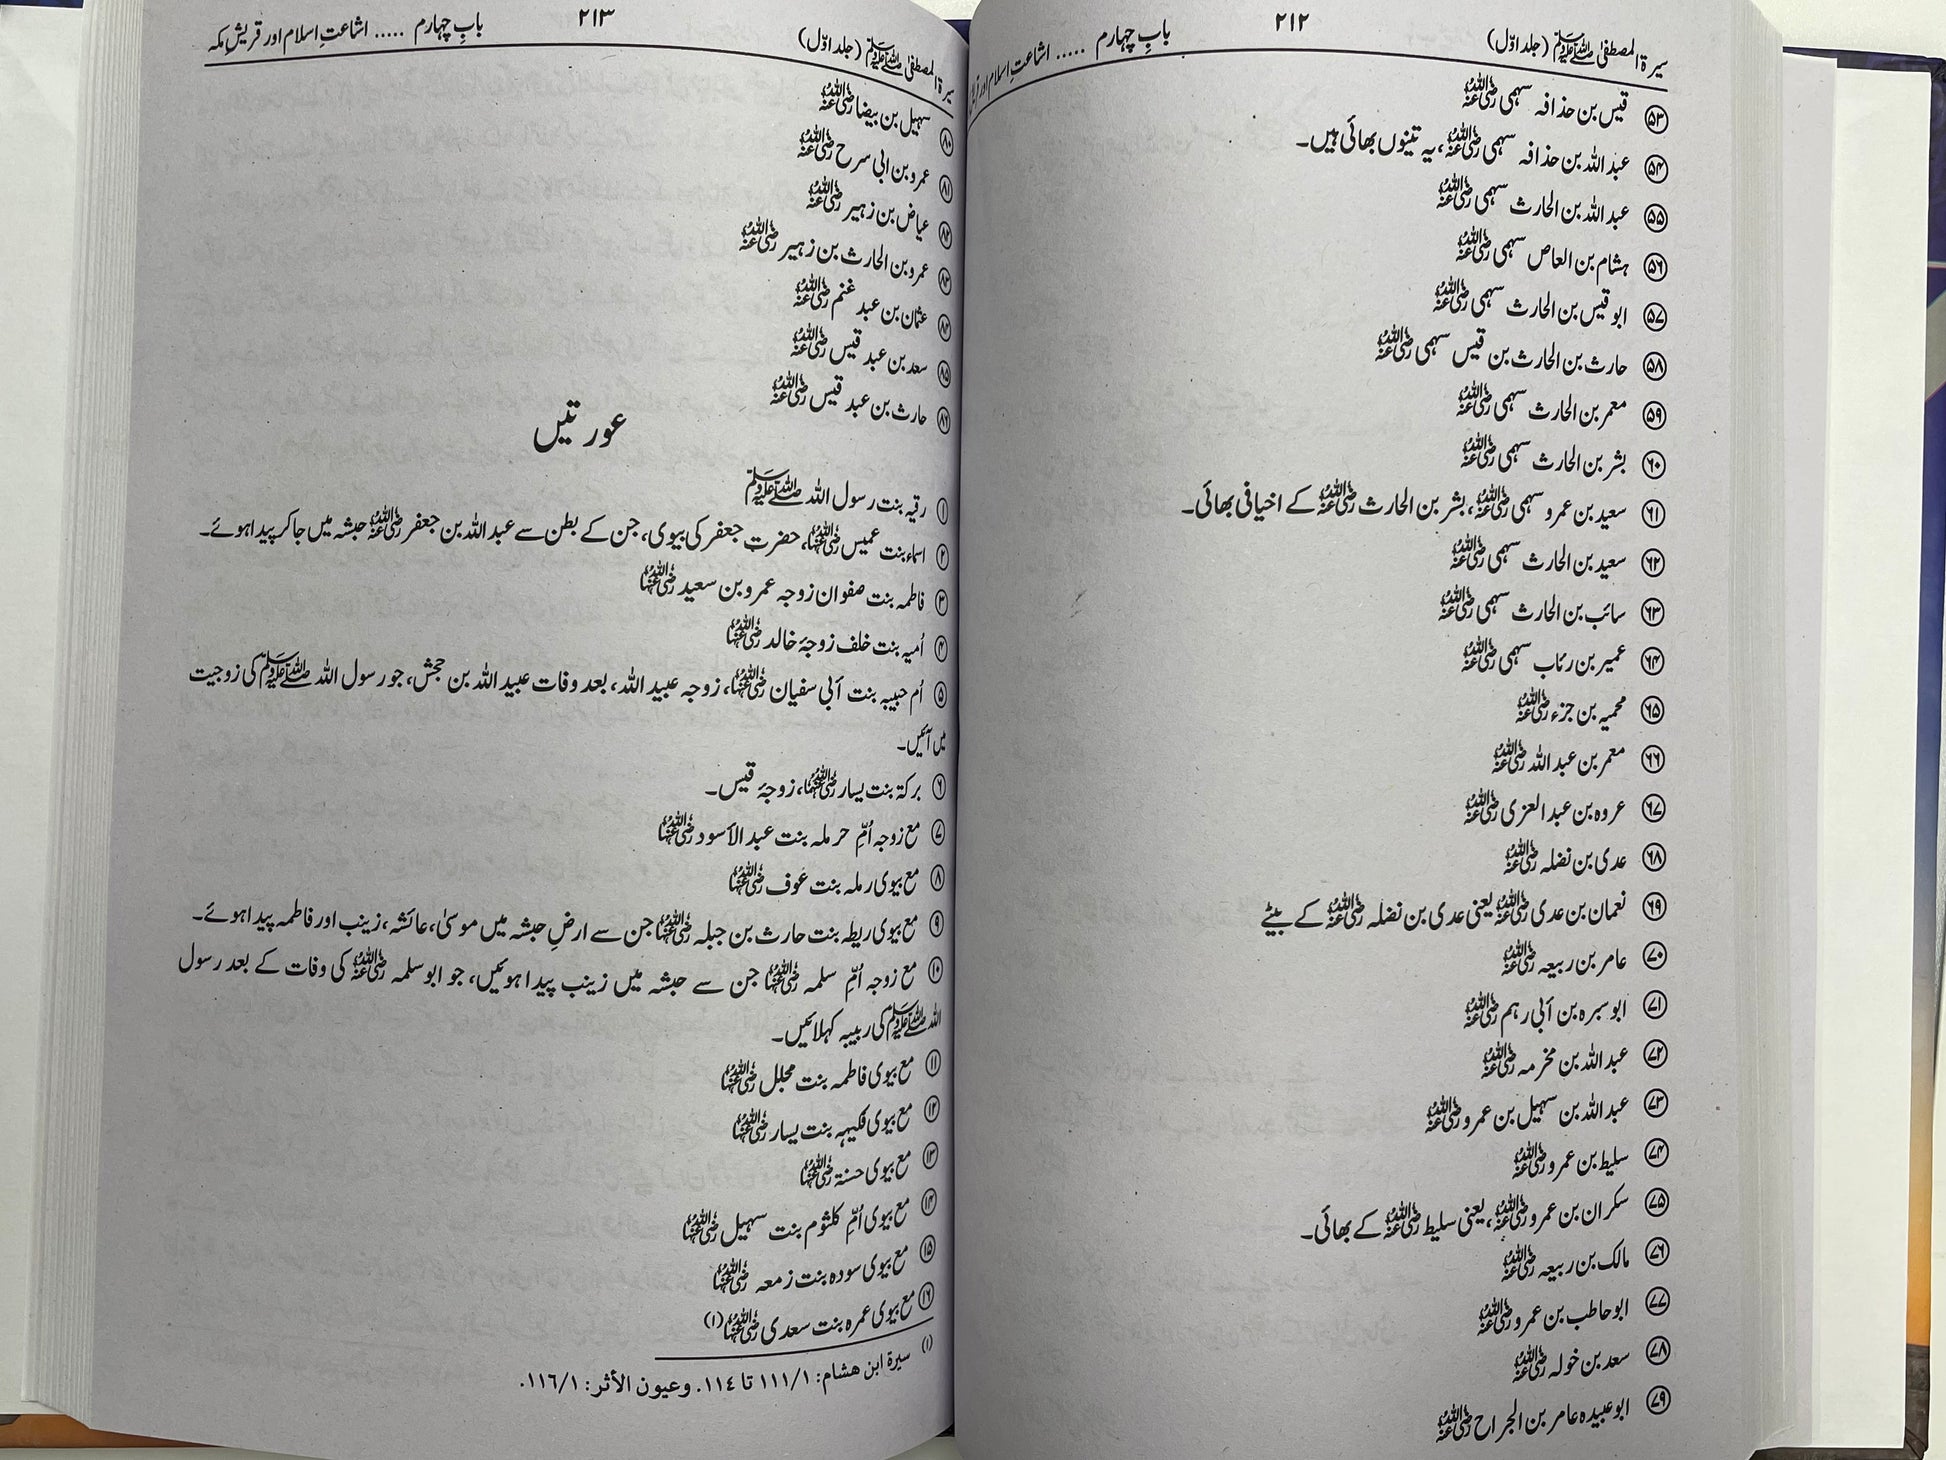 سیرۃ المصطفیٰ ﷺ (جلد اوّل) ۲۱۲ بابِ چہارم ..... اشاعتِ اسلام اور
۵۳ قیس بن حذافہ سہمی رضی اللہ عنہ
۵۴ عبد اللہ بن حذافہ سہمی رضی اللہ عنہ، یہ تینوں بھائی ہیں۔
۵۵ عبد اللہ بن الحارث سہمی رضی اللہ عنہ
۵۶ ہشام بن العاص سہمی رضی اللہ عنہ
۵۷ ابو قیس بن الحارث سہمی رضی اللہ عنہ
۵۸ حارث بن الحارث بن قیس سہمی رضی اللہ عنہ
۵۹ معمر بن الحارث سہمی رضی اللہ عنہ
۶۰ بشر بن الحارث سہمی رضی اللہ عنہ
۶۱ سعید بن عمرو سہمی رضی اللہ عنہ، بشر بن الحارث رضی اللہ عنہ کے اخیافی بھائی۔
۶۲ سعید بن الحارث سہمی رضی اللہ عنہ
۶۳ سائب بن الحارث سہمی رضی اللہ عنہ
۶۴ عمیر بن رئاب سہمی رضی اللہ عنہ
۶۵ محمیہ بن جزء رضی اللہ عنہ
۶۶ معمر بن عبد اللہ رضی اللہ عنہ
۶۷ عروہ بن عبد العزی رضی اللہ عنہ
۶۸ عدی بن نضلہ رضی اللہ عنہ
۶۹ نعمان بن عدی رضی اللہ عنہ یعنی عدی بن نضلہ رضی اللہ عنہ کے بیٹے
۷۰ عامر بن ربیعہ رضی اللہ عنہ
۷۱ ابو سبرہ بن أبی رہم رضی اللہ عنہ
۷۲ عبد اللہ بن مخرمہ رضی اللہ عنہ
۷۳ عبد اللہ بن سہیل بن عمرو رضی اللہ عنہ
۷۴ سلیط بن عمرو رضی اللہ عنہ
۷۵ سکران بن عمرو رضی اللہ عنہ، یعنی سلیط رضی اللہ عنہ کے بھائی۔
۷۶ مالک بن ربیعہ رضی اللہ عنہ
۷۷ ابو حاطب بن عمرو رضی اللہ عنہ
۷۸ سعد بن خولہ رضی اللہ عنہ
۷۹ ابو عبیدہ عامر بن الجراح رضی اللہ عنہ
سیرۃ المصطفیٰ ﷺ (جلد اوّل) ۲۱۳ بابِ چہارم ..... اشاعتِ اسلام اور قریشِ مکہ
۸۰ سہیل بن بیضا رضی اللہ عنہ
۸۱ عمرو بن ابی سرح رضی اللہ عنہ
۸۲ عیاض بن زہیر رضی اللہ عنہ
۸۳ عمرو بن الحارث بن زہیر رضی اللہ عنہ
۸۴ عثمان بن عبد غنم رضی اللہ عنہ
۸۵ سعد بن عبد قیس رضی اللہ عنہ
۸۶ حارث بن عبد قیس رضی اللہ عنہ
عورتیں
۱ رقیہ بنت رسول اللہ ﷺ
۲ اسماء بنت عمیس رضی اللہ عنہا، حضرت جعفر کی بیوی، جن کے بطن سے عبد اللہ بن جعفر رضی اللہ عنہ حبشہ میں جا کر پیدا ہوئے۔
۳ فاطمہ بنت صفوان زوجہ عمرو بن سعید رضی اللہ عنہا
۴ اُمیہ بنت خلف زوجۂ خالد رضی اللہ عنہا
۵ اُم حبیبہ بنت أبی سفیان رضی اللہ عنہا، زوجہ عبید اللہ، بعد وفات عبید اللہ بن جحش، جو رسول اللہ ﷺ کی زوجیت
میں آئیں۔
۶ برکۃ بنت یسار رضی اللہ عنہا، زوجۂ قیس۔
۷ مع زوجہ اُمِّ حرملہ بنت عبد الأسود رضی اللہ عنہا
۸ مع بیوی رملہ بنت عوف رضی اللہ عنہا
۹ مع بیوی ریطہ بنت حارث بن جبلہ رضی اللہ عنہا جن سے ارضِ حبشہ میں موسیٰ، عائشہ، زینب اور فاطمہ پیدا ہوئے۔
۱۰ مع زوجہ اُمِّ سلمہ رضی اللہ عنہا جن سے حبشہ میں زینب پیدا ہوئیں، جو ابو سلمہ رضی اللہ عنہ کی وفات کے بعد رسول
اللہ ﷺ کی ربیبہ کہلائیں۔
۱۱ مع بیوی فاطمہ بنت مجلل رضی اللہ عنہا
۱۲ مع بیوی فکیہہ بنت یسار رضی اللہ عنہا
۱۳ مع بیوی حسنۃ رضی اللہ عنہا
۱۴ مع بیوی اُمِّ کلثوم بنت سہیل رضی اللہ عنہا
۱۵ مع بیوی سودہ بنت زمعہ رضی اللہ عنہا
۱۶ مع بیوی عمرہ بنت سعدی رضی اللہ عنہا (۱)
(۱) سیرۃ ابن ھشام: ۱/۱۱۱ تا ۱۱٤. وعیون الأثر: ۱/۱۱٦.